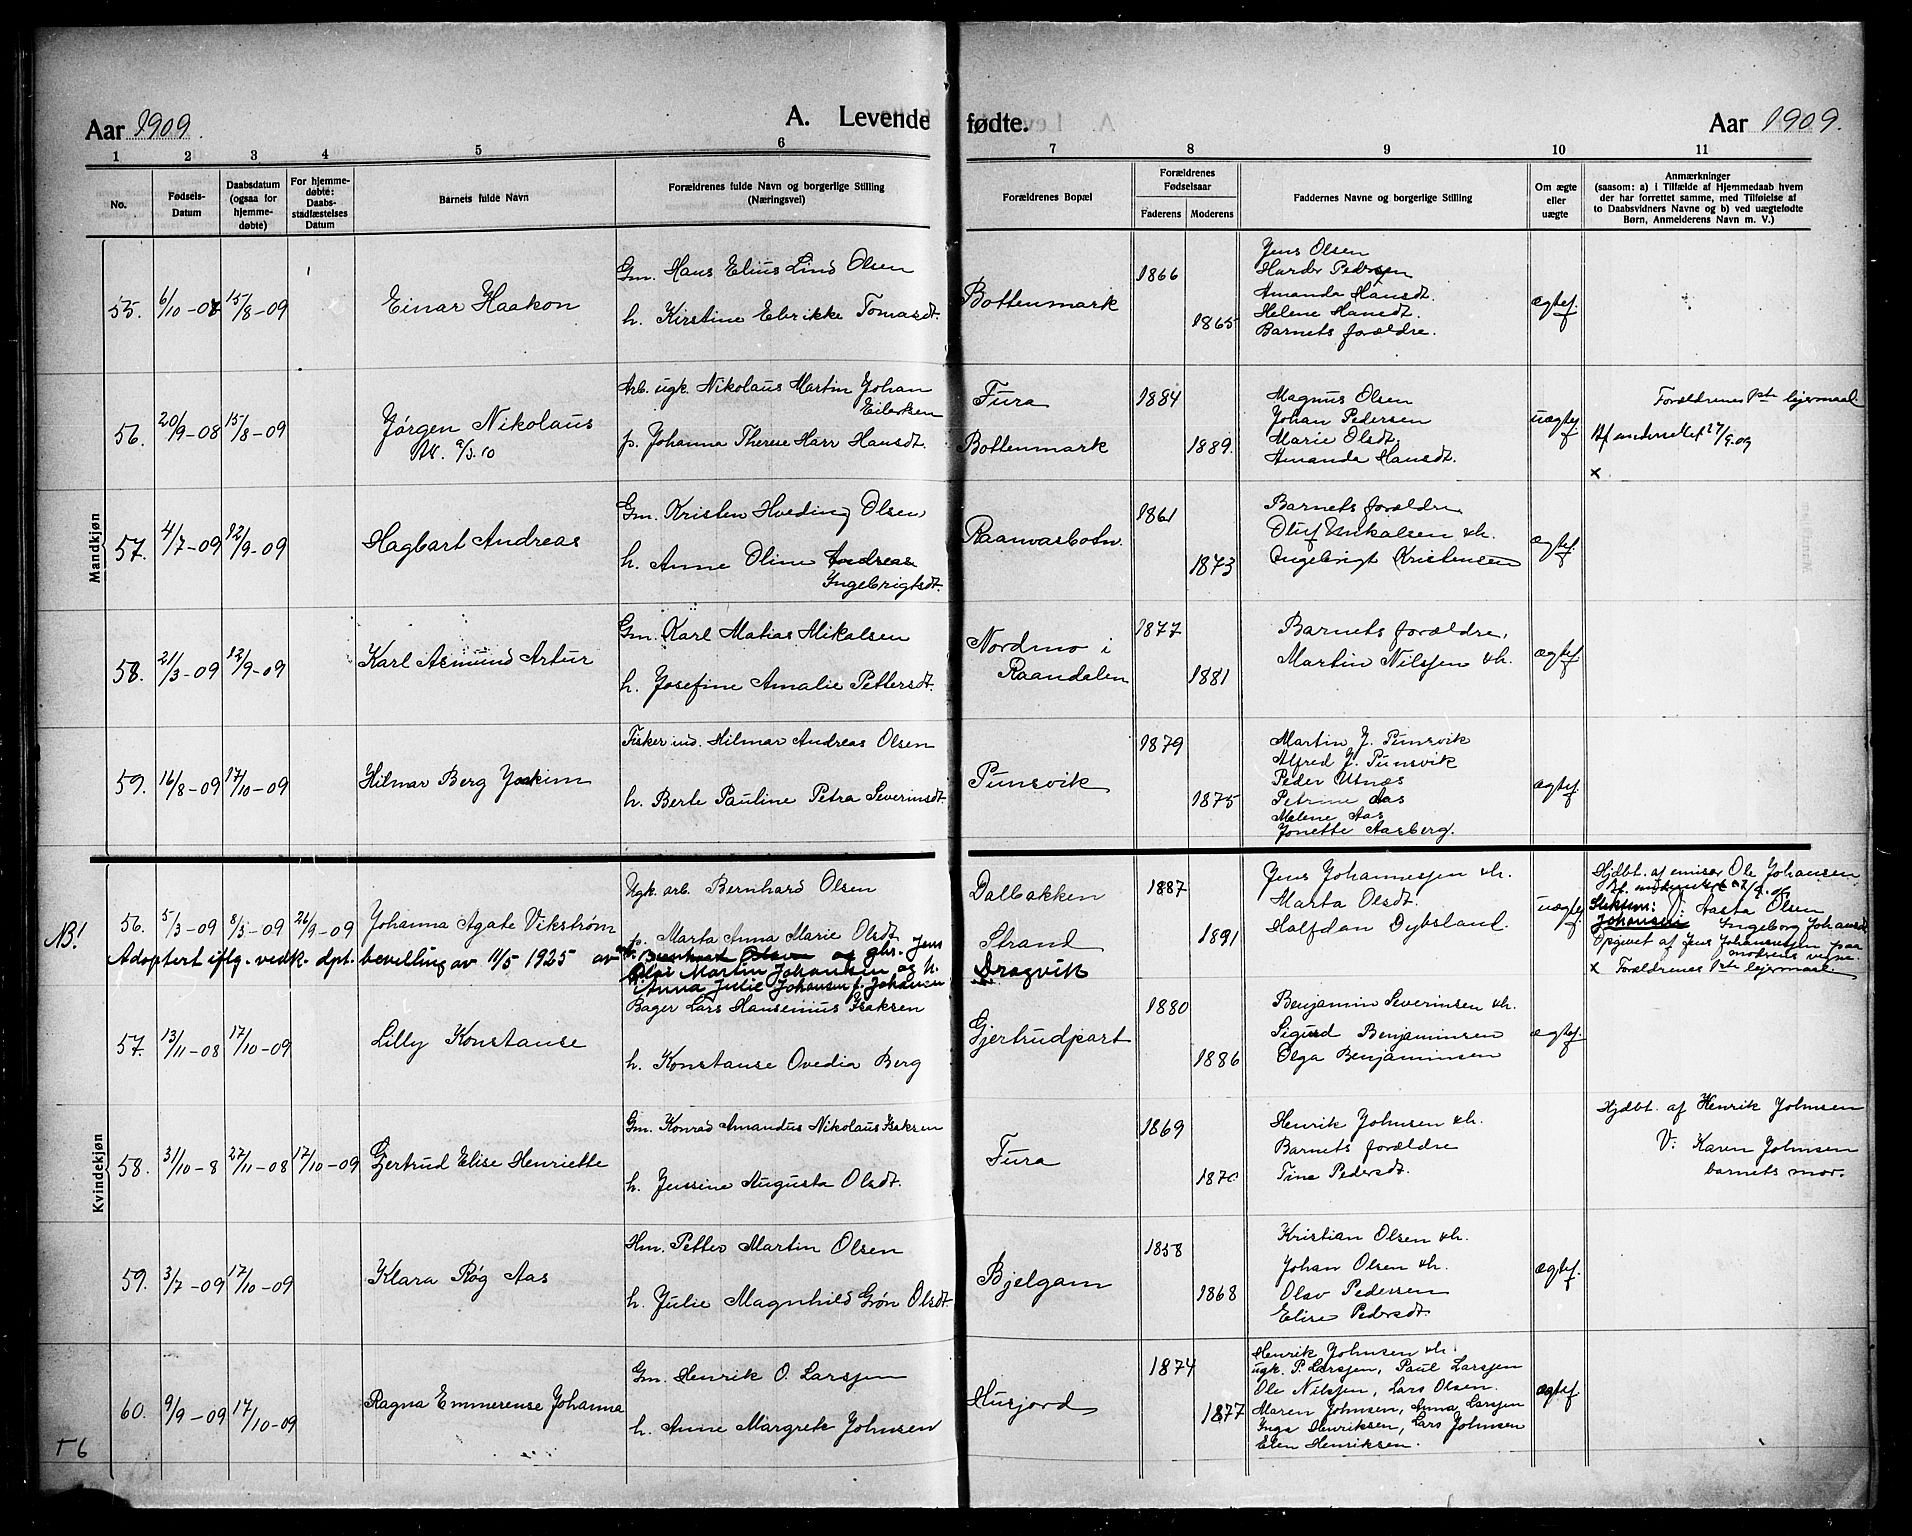 Aar 1909.
A. Levende fødte.
Aar 1909.
1 2 3 4 5 6 7 8 9 10 11
No.
Fødsels-Datum
Daabsdatum (ogsaa for hjemme-døbte)
For hjemme-døbte: Daabs-stadfæstelses Datum
Barnets fulde Navn
Forældrenes fulde Navn og borgerlige Stilling (Næringsvei)
Forældrenes Bopæl
Forældrenes Fødselsaar
Faderens Moderens
Faddernes Navne og borgerlige Stilling
Om ægte eller uægte
Anmærkninger
(saasom: a) i Tilfælde af Hjemmedaab hvem
der har forrettet samme, med Tilføielse af
to Daabsvidners Navne og b) ved uægtefødte
Børn, Anmelderens Navn m. V.)
Mandkjøn
55. 6/10-08 15/8-09 Einar Haakon
Gm. Hans Elius Lind Olsen
h. Kirstine Ebrikke Tomasdt.
Bottenmark
1866
1865
Jens Olsen
Harder Pedersen
Amanda Hansdt.
Helene Hansdt.
Barnets forældre.
ægtef.
56. 20/9-08 15/8-09 Jørgen Nikolaus
Arb. ugk. Nikolaus Martin Johan
Eilertsen
p. Johanna Therese Harr Hansdt.
Fura
Bottenmark
1884
1889.
Magnus Olsen
Johan Pedersen
Marie Olsdt.
Amanda Hansdt.
uægtef.
Forældrenes 1ste lejermaal
Bf. underrettet 27/9.09
x
57. 4/7-09 12/9-09 Hagbart Andreas
Gm. Kristen Hveding Olsen
h. Anne Oline Andreas
Ingebrigtsdt.
Raanvasbotn.
1861
1873
Barnets forældre
Oluf Mikalsen &h.
Ingebrigt Kristensen
ægtef.
58. 21/3-09 12/9-09 Karl Asmund Artur
Gm. Karl Matias Mikalsen
h. Josefine Amalie Pettersdt.
Nordmo i
Raandalen
1877
1881
Barnets forældre.
Martin Nilssen &h.
ægtef.
59. 16/8-09 17/10-09 Hilmar Berg Joakim
Fisker ind. Hilmar Andreas Olsen
h. Berle Pauline Petra Severinsdt.
Punsvik
1879
1875
Martin J. Punsvik
Alfred J. Punsvik
Peder Utnæs
Petrine Aas
Malene Aas
Jonette Aasberg.
ægtef.
Kvindekjøn
NB!
56. 5/3-09 8/3-09 26/9-09 Johanna Agate Vikstrøm
Ugk. arb. Bernhard Olsen
p. Marta Anna Marie Olsdt.
Adoptert iflg. vedk. dpt. bevilling av 11/5 1925 av Bernhard Olsen og gbr. Jens
Olai Martin Johansen og h.
Anna Julie Johansen f. Johansen
Dalbakken
Strand
Dragvik
1887
1891
Jens Johannessen &h.
Marta Olsdt.
Halfdan Dybsland.
uægtef.
Hjdbt. af emisær Ole Johansen
Bf. underrettet 27/9.09
Johansen: Aasta Olsen
Ingeborg Johansdt.
Opgivet af Jens Johannessen paa
modrens vegne.
x Forældrenes 1ste lejermaal
57. 13/11-08 17/10-09 Lilly Konstanse
Bager Lars Hansenius Isaksen
h. Konstanse Ovedia Berg
Gjertrudpart
1880
1886
Benjamin Severinsen &h.
Sigurd Benjaminsen
Olga Benjaminsen
ægtef.
58. 31/10-8 27/11-08 17/10-09 Gjertrud Elise Henriette
Gm. Konrad Amandus Nikolaus Isaksen
h. Jensine Augusta Olsdt.
Fura
1869
1870
Henrik Johnsen &h.
Barnets forældre
Tina Pedersdt.
Hjdbt. af Henrik Johnsen
V: Karen Johnsen
barnets mor.
59. 3/7-09 17/10-09 Klara Røg Aas
Hm. Petter Martin Olsen
h. Julie Magnhild Grøn Olsdt.
Bjelgam
1858
1868
Kristian Olsen &h.
Johan Olsen &h.
Olav Pedersen
Elise Pedersdt.
ægtef.
60. 9/9-09 17/10-09 Ragna Emmerense Johanna
Gm. Henrik O. Larssen
h. Anne Margrete Johnsen
Husjord
1874
1877
Henrik Johnsen &h.
ugk. P. Larssen, Paul Larssen
Ole Nilssen, Lars Olsen.
Maren Johnsen, Anna Larssen
Inga Henriksen, Lars Johnsen
Elen Henriksen.
ægtef.